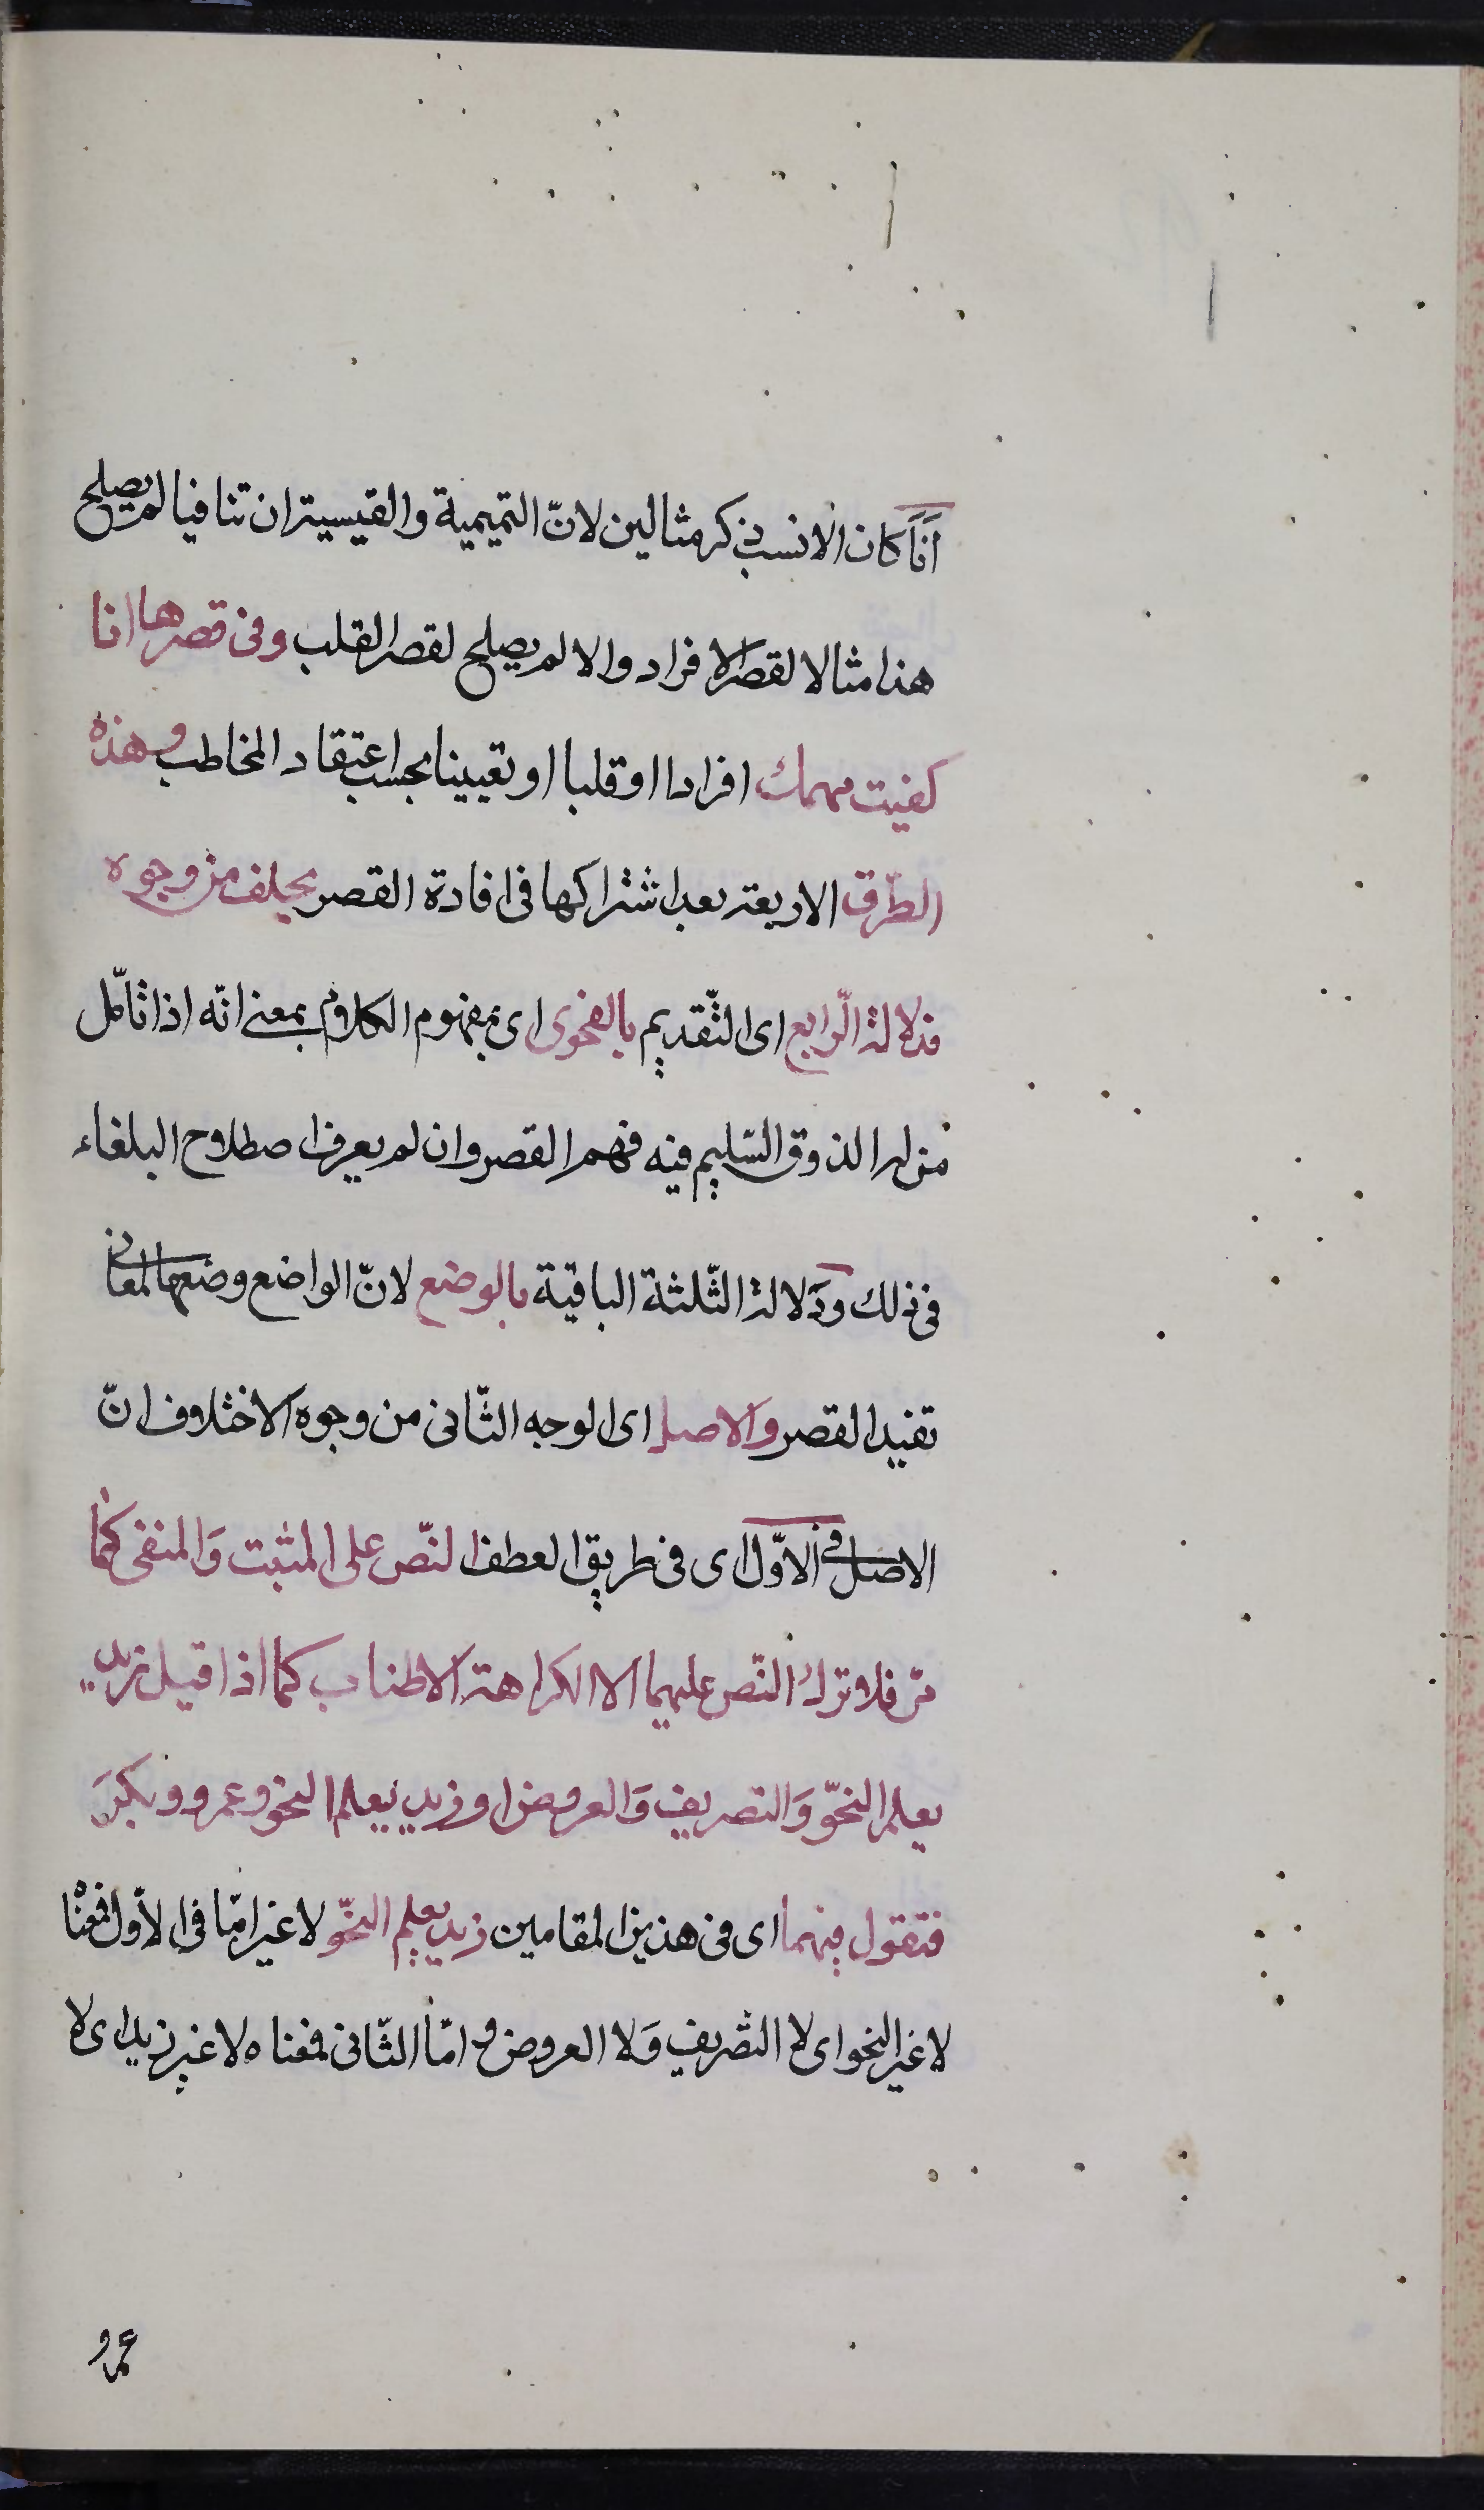 اَنَا كان الانسب ذكر مثالين لانّ التميمية والقيسية ان تنافيا لم يصلح
هذا مثالا لقصر الافراد والا لم يصلح لقصر القلب وفى قصرها انا
كفيت مهمك افرادا او قلبا او تعيينا بحسب اعتقاد المخاطب وهذه
الطّرق الاربعة بعد اشتراكها فى افادة القصر يختلف من وجوه
فدلالة الرّابع اى التّقديم بالفحوى اى بمفهوم الكلام بمعنى انّه اذا تأمّل
من له الذوق السّليم فيه فهم القصر وان لم يعرف اصطلاح البلغاء
فى ذلك وَدَلالة الثّلثة الباقية بالوضع لانّ الواضع وضعها لمعان
تفيد القصر والاصل اى الوجه الثّانى من وجوه الاختلاف انّ
الاصل فى الاوّل اى فى طريق العطف النّص على المثبت وَالمنفى كما
مرّ فلا تترك النّص عليهما الا لكراهة الاطناب كما اذا قيل زيد
يعلم النحّو وَالتصريف وَالعروض او زيد يعلم النحو وعمرو وبكر
فتقول فيهما اى فى هذين المقامين زيد يعلم النحّو لا غير امّا فى الاوّل فمعناه
لا غير النحو اى لا التّصريف وَلا العروض و امّا الثّانى فمعناه لا غير زيد اى لا
عمرو